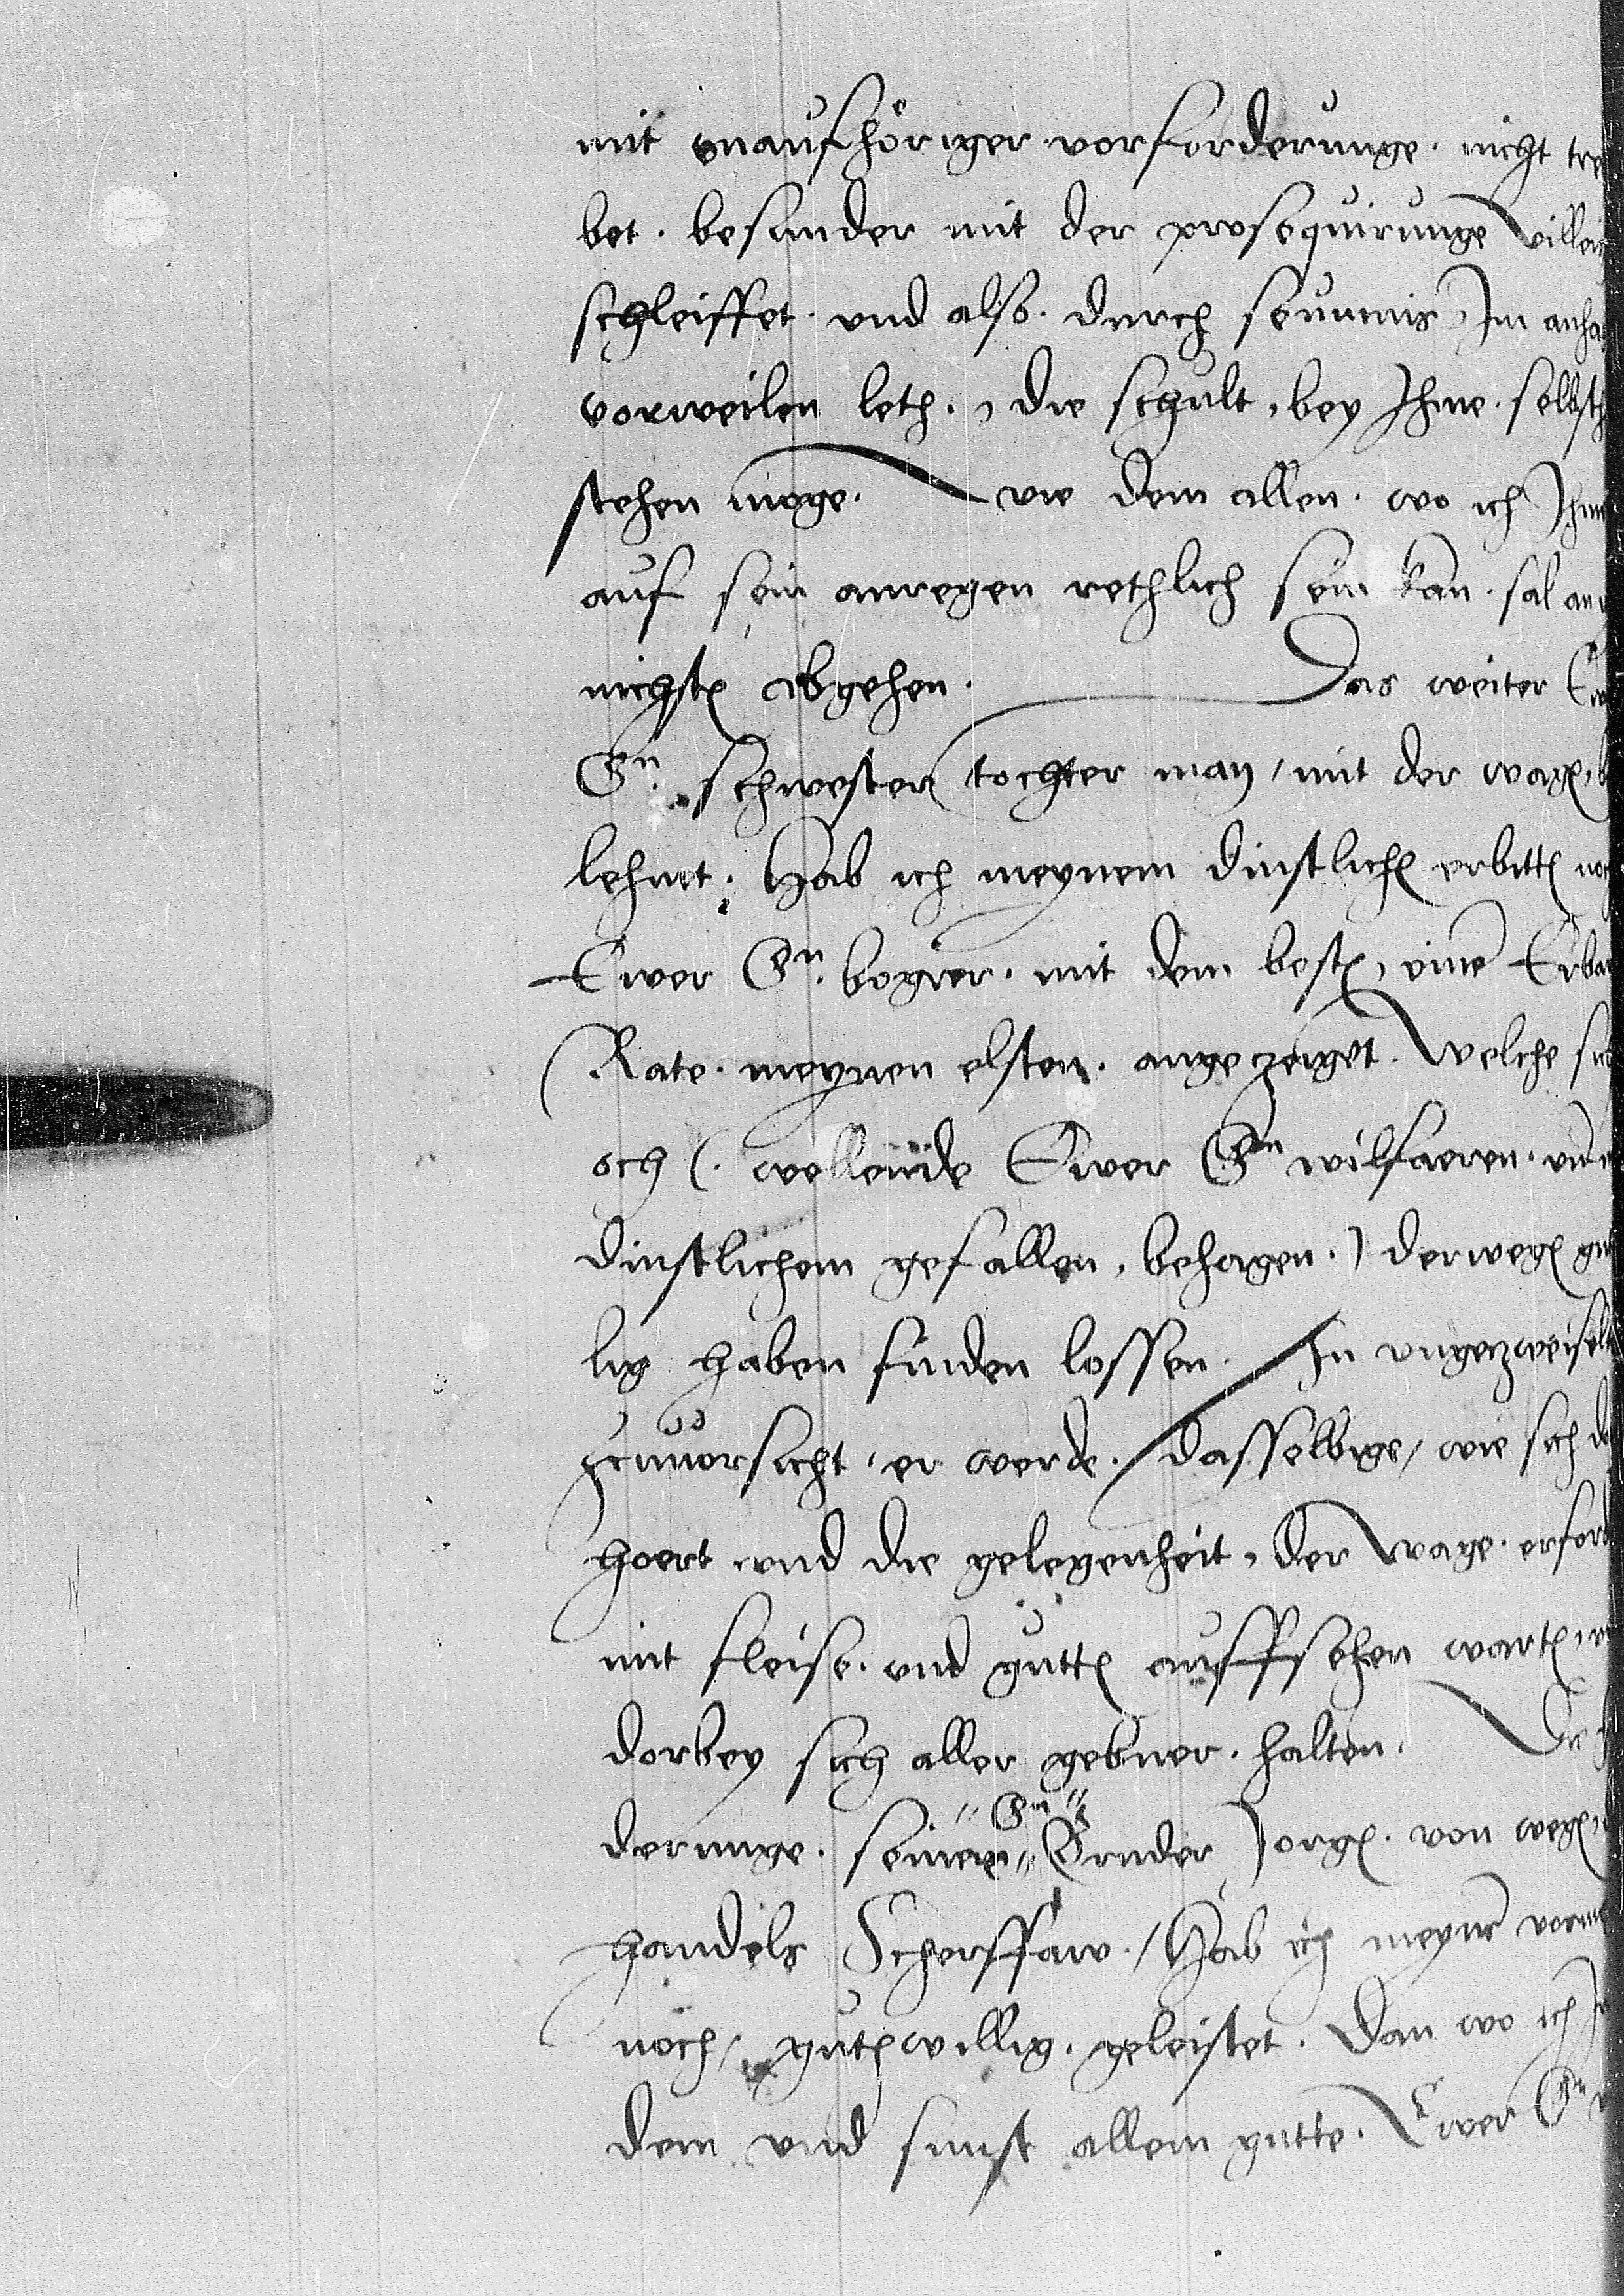 mit vnaufhöriger vorforderunge. nicht tre
bet. besunder mit der prosequirunge villei
schleiffet. vnd also. durch seumnis, Im anha
vorweilen leth., die schult, bey Ihme. selbst
stehen moge. vie dem allen. wo ich Ihm
auf sein anregen rethlich sein kan. sal an
nichste abgehen. Das weiter Ew
Gn. schwester tochter man, mit der wage, b
lehnet. Hab ich meynem dinstliche erbitte noch
Ewer Gn. begier. mit dem beste, eine Erba
Rate. meynen elsten. angezeiget. welche sich
och (. wellende Ewer Gn wilfaeren. vnd
dinstlichem gefallen, behagen.) derwege gut
lig haben finden lossen. In vngezweifelt
zuuorsicht, er werde. dasselbige, wie sich de
hoert vnd die gelegenheit, der wage. erford
mit fleise. vnd gutte auffsehen warte,
dorbey sich aller gebuer. halten. Die
Gn
derunge. seinem Bruder Jorge. von wege,
handels Scharffaw. Hab ich meyne vorm
noch, gutewillig. geleistet. Dan wo ich I
dem vnd sunst allem gutte. Ewer Gn